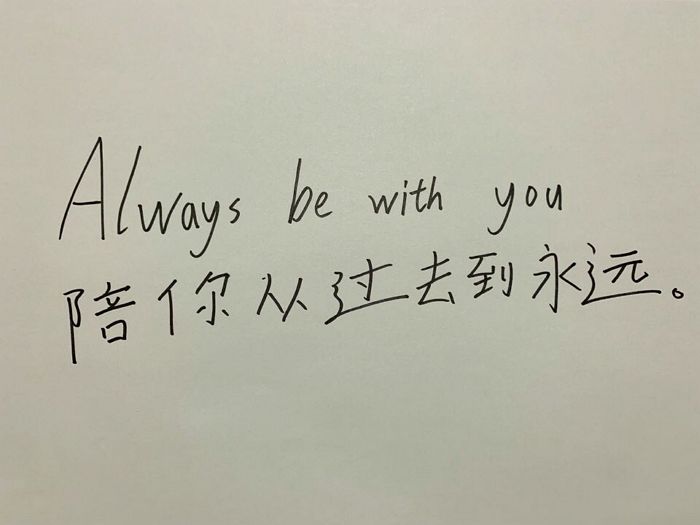 Always be with you
陪你从过去到永远。